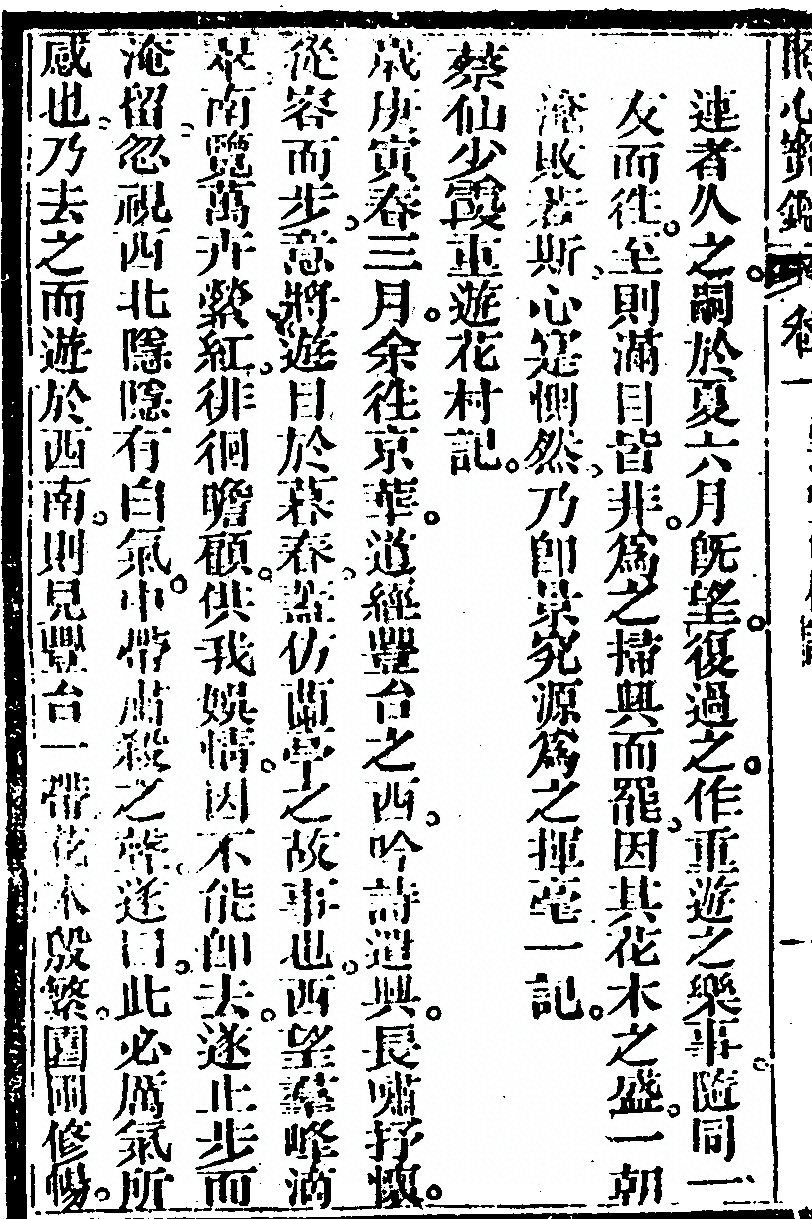 連者久之。嗣於夏六月旣望。復過之。作重遊之樂事。隨同一
友而往。至則滿目皆非。爲之掃興而罷。因其花木之盛。一朝
淹敗若斯。心寔惻然。乃卽景究源。爲之揮毫一記。
蔡仙少霞重遊花村記。
歲庚寅春三月。余往京華。道經豐台之西。吟詩遣興。長嘯抒懷。
從容而步。意將遊目於暮春。葢仿蘭亭之故事也。西望羣峰滴
翠。南覽萬卉縈紅。徘徊瞻顧。供我娛情。因不能卽去。遂止步而
淹留。忽視西北隱隱有白氣。中帶肅殺之聲。遂曰。此必厲氣所
感也。乃去之而遊於西南。則見豐台一帶。花木殷繁。園囿修暢。
心寶鑑 卷一